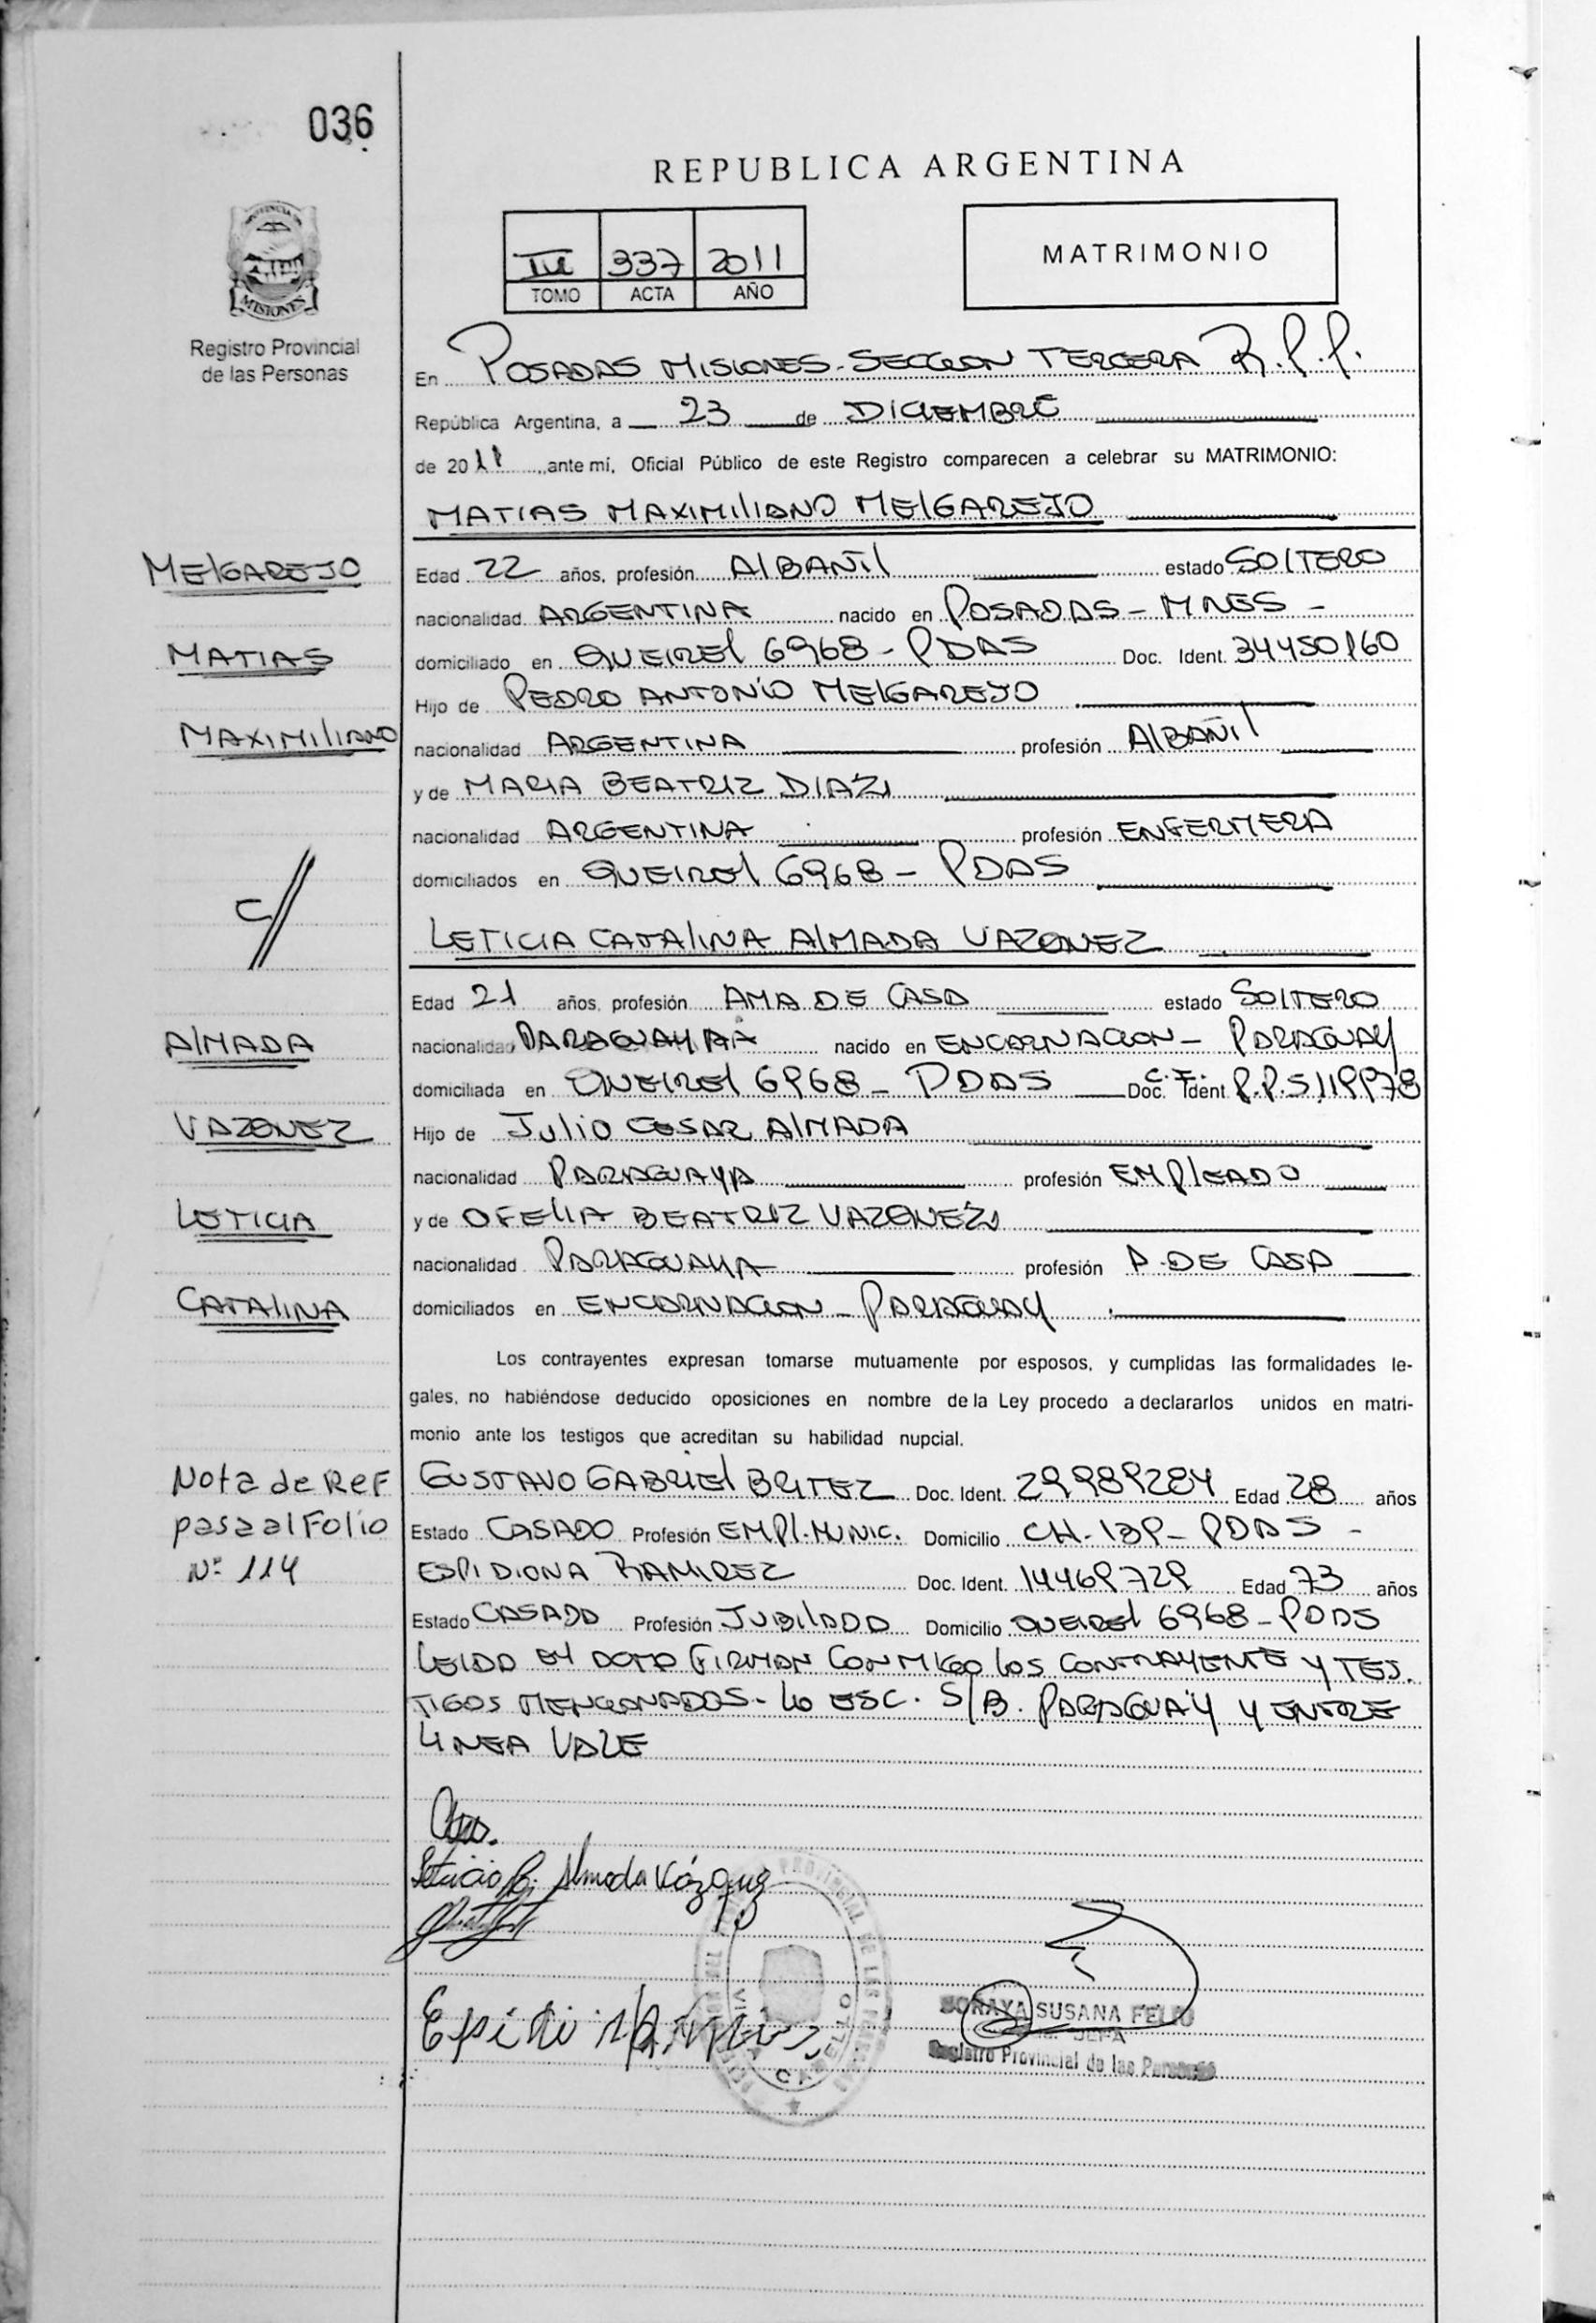 036
REPUBLICA ARGENTINA
PROVINCIA DE
MISIONES
Registro Provincial
de las Personas
III 337 2011
TOMO ACTA AÑO
MATRIMONIO
En POSADAS MISIONES - SECCION TERCERA R.P.P.
República Argentina, a 23 de DICIEMBRE
de 2011, ante mí, Oficial Público de este Registro comparecen a celebrar su MATRIMONIO:
MATIAS MAXIMILIANO MELGAREJO
MELGAREJO
Edad 22 años, profesión ALBAÑIL estado SOLTERO
nacionalidad ARGENTINA nacido en POSADAS - MNES -
MATIAS
domiciliado en QUEIREL 6968 - PDAS Doc. Ident. 34450160
Hijo de PEDRO ANTONIO MELGAREJO
MAXIMILIANO
nacionalidad ARGENTINA profesión ALBAÑIL
y de MARIA BEATRIZ DIAZ
nacionalidad ARGENTINA profesión ENFERMERA
domiciliados en QUEIREL 6968 - PDAS
C//
LETICIA CATALINA ALMADA VAZQUEZ
Edad 21 años, profesión AMA DE CASA estado SOLTERO
ALMADA
nacionalidad PARAGUAYA nacido en ENCARNACION - PARAGUAY
domiciliada en QUEIREL 6968 - PDAS Doc. Ident. R.P. 5119978
VAZQUEZ
Hijo de JULIO CESAR ALMADA
nacionalidad PARAGUAYA profesión EMPLEADO
LETICIA
y de OFELIA BEATRIZ VAZQUEZ
nacionalidad PARAGUAYA profesión A. DE CASA
CATALINA
domiciliados en ENCARNACION - PARAGUAY
Los contrayentes expresan tomarse mutuamente por esposos, y cumplidas las formalidades le-
gales, no habiéndose deducido oposiciones en nombre de la Ley procedo a declararlos unidos en matri-
monio ante los testigos que acreditan su habilidad nupcial.
Nota de Ref
pasa al Folio
Nº 114
GUSTAVO GABRIEL BRITEZ Doc. Ident. 29989284 Edad 28 años
Estado CASADO Profesión EMPL. MUNIC. Domicilio CH-139 - PDAS -
ESPIDIONA RAMIREZ Doc. Ident. 14469729 Edad 73 años
Estado CASADA Profesión JUBILADA Domicilio QUEIREL 6968 - PDAS
LEIDA EL ACTA FIRMAN CONMIGO LOS CONTRAYENTE Y TES.
TIGOS MENCIONADOS - LO ESC. S/B. PARAGUAY Y ENTRE
LINEA VALE
Leticia C. Almada Vázquez
SORAYA SUSANA FELIU
JEFA
Registro Provincial de las Personas